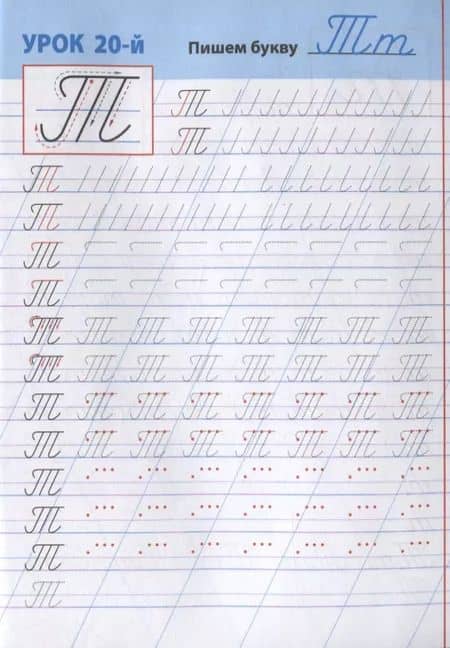 УРОК 20-й Пишем букву Тт
Т
Т
Т
Т
Т
Т
Т
Т Т Т Т Т Т Т Т
Т Т Т Т Т Т Т Т
Т Т Т Т Т Т Т Т
Т Т Т Т Т Т Т Т
Т
Т
Т
Т